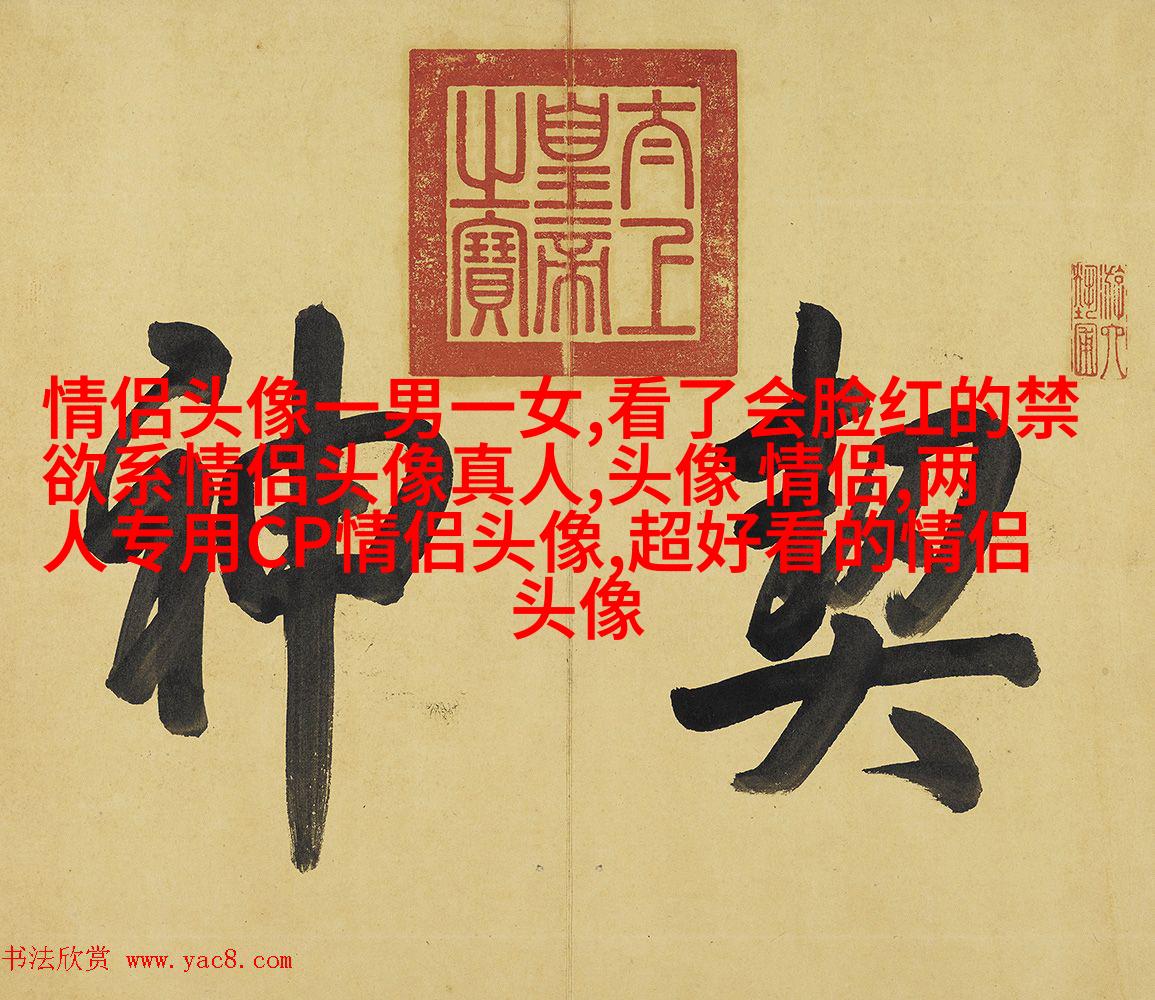 太上皇帝之寶
游六藝圃
契神
情侣头像一男一女,看了会脸红的禁
欲系情侣头像真人,头像 情侣,两
人专用CP情侣头像,超好看的情侣
头像
书法欣赏 www.yac8.com